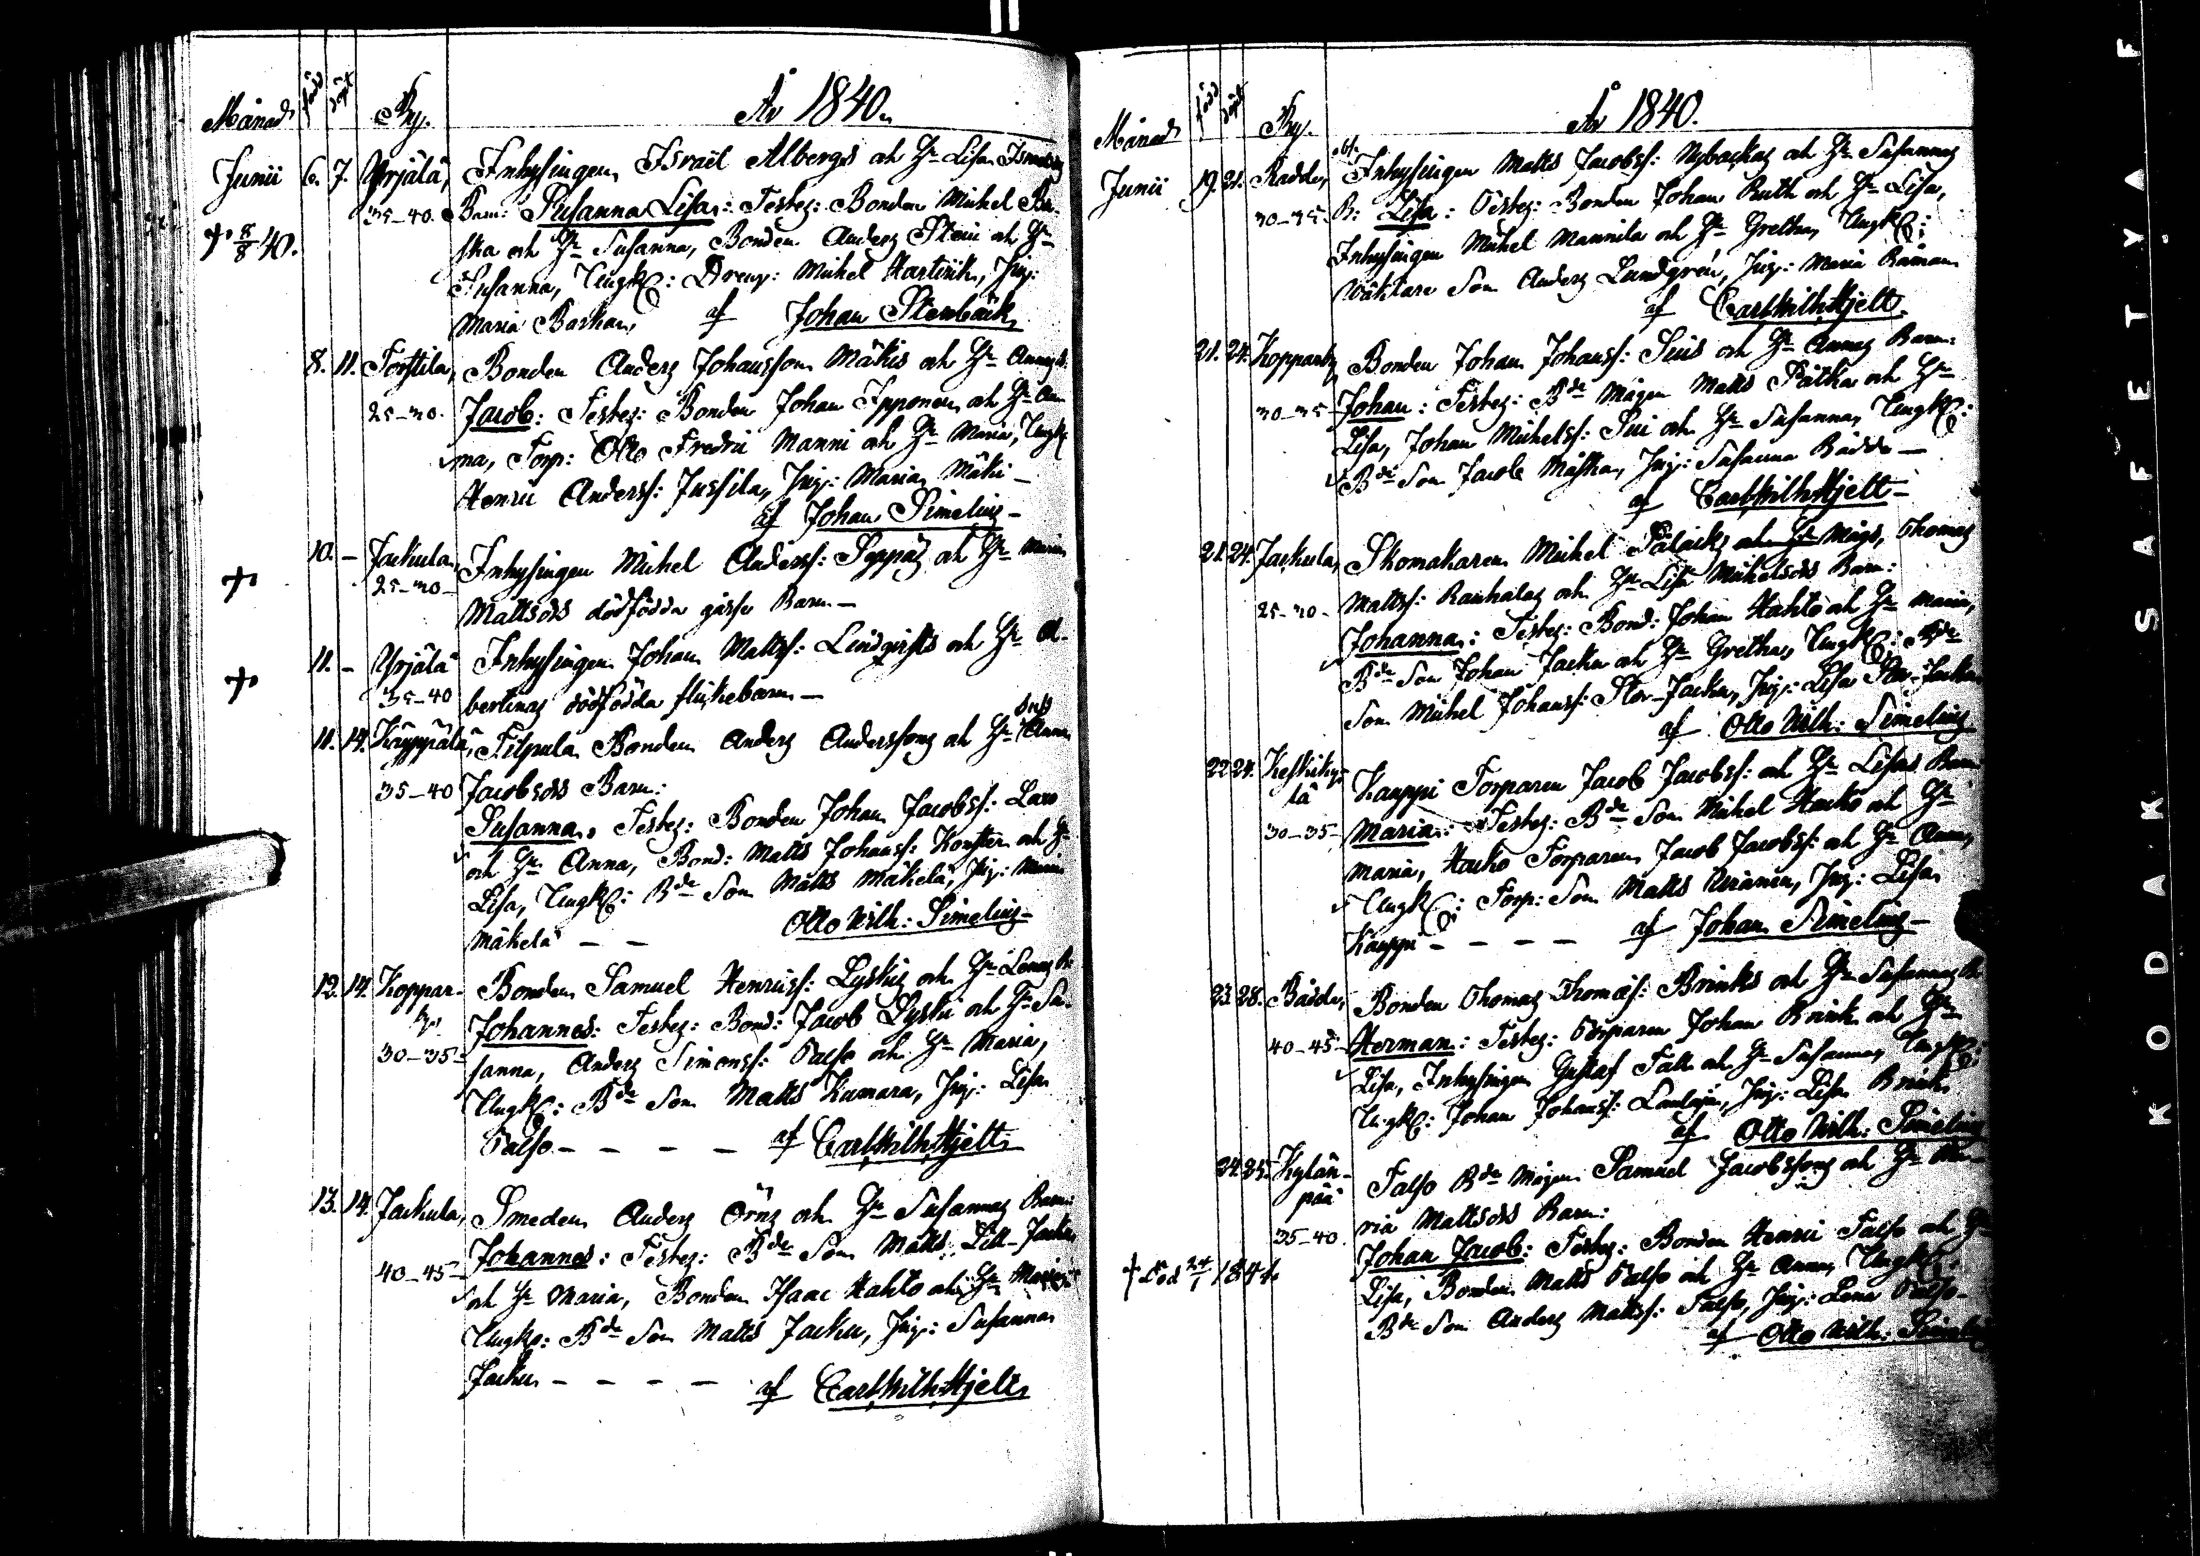 Månad född döpt By. År 1840.
Junii 6. 7. Yrjälä, Inhysingen Israel Albergs och H: Lisa
35–40. Barn: Susanna Lisa: Testes: Bonden Michel
† 8/8 40. ska och H: Susanna, Bonden Anders Steni och H:
Susanna, Ungk: Dreng: Michel Hartvik, Pig:
Maria Backan, af Johan Stenbäck
8. 11. Torttila, Bonden Anders Johansson Mäkis och H: Annas B:
25–30. Jacob: Testes: Bonden Johan Ipponen och H: An
na, Torp: Otto Fredric Manni och H: Maria, Ungk
Henric Anderss: Jussila, Pig: Maria Mäki –
af Johan Simelius –
† 10. – Jackula, Inhysingen Michel Anderss: Seppäs och H: Maria
25–30 – Mattsdrs dödfödda gosse Barn –
† 11. – Yrjälä Inhysingen Johan Matts: Lindqvists och H: Al-
35–40 bertinas dödfödda flickebarn –
11. 14. Käyppälä, Filpula Bonden Anders Anderssons och H: Anna
35–40 Jacobsdrs Barn:
Susanna. Testes: Bonden Johan Jacobss: Lass
och H: Anna, Bond: Matts Johanss: och H:
Lisa, Ungk: Bde Son Matts Mäkelä, Pig: Maria
Mäkelä – – Otto Wilh: Simelius –
12. 14. Koppar- Bonden Samuel Henricss: Lyskis och H: Lenas B:
by, Johannes: Testes: Bond: Jacob Lyski och H: Su-
30–35 – sanna, Anders Simonss: Palso och H: Maria,
Ungk: Bde Son Matts Kumara, Pig: Lisa
Palso – – – – af Carl Wilh Hjelt
13. 14. Jackula, Smeden Anders Örns och H: Susannas Barn:
40–45 – Johannes: Testes: Bde Son Matts Lill-Jacku
och H: Maria, Bonden Isaac Hahto och H: Maria
Ungk: Bde Son Matts Jacku, Pig: Susanna
Jacku – – – – af Carl Wilh Hjelt
Månad född döpt By. År 1840.
Junii 19. 21. Radde, Inhysingen Matts Jacobss: Nybackas och H: Susannas
30–35 – B: Lisa: Testes: Bonden Johan Ruth och H: Lisa,
Inhysingen Michel Mannila och H: Gretha, Ungk:
Wäktare Son Anders Lundgrén, Pig: Maria
af Carl Wilh Hjelt.
21. 24. Kopparby, Bonden Johan Johanss: Suis och H: Annas Barn:
30–35 – Johan: Testes: Bde Mågen Matts Pätkä och H:
Lisa, Johan Michelss: Sui och H: Susanna, Ungk:
Bde Son Jacob Mäkka, Pig: Susanna Rädde –
af Carl Wilh Hjelt –
21. 24. Jackula, Skomakaren Michel och Mågs, Thomas
25–30 – Mattss: Rauhalas och H: Lisa Michelsdrs Barn:
Johanna: Testes: Bond: Johan Hahto och H: Maria,
Bde Son Johan Jacku och H: Gretha, Ungk: Bde
Son Michel Johanss: Stor-Jacku, Pig: Lisa Stor-Jacku
af Otto Wilh: Simelius
22. 24. Keskiky- Kauppi Torparen Jacob Jacobss: och H: Lisas Barn
lä
30–35 – Maria: Testes: Bde Son Michel Hacko och H:
Maria, Hacko Torparen Jacob Jacobss: och H: Anna,
Ungk: Torp: Son Matts Kiviniemi, Pig: Lisa
Kauppi – – – – af Johan Simelius –
23. 28. Rädde, Bonden Thomas Thomass: Brinks och H: Susannas B:
40–45 – Herman: Testes: Torparen Johan Brink och H:
Lisa, Inhysingen Gustaf Fält och H: Susanna, Ungk:
Ungk: Johan Johanss: Pig: Lisa Brink
af Otto Wilh: Simelius
24. 25. Kylän- Falso Bde Mågen Samuel Jacobssons och H: Ma-
pää ria Mattsdrs Barn:
35–40 Johan Jacob: Testes: Bonden Henric Falso och H:
† död 24/1 1841. Lisa, Bonden Matts Palso och H: Anna, Ungk:
Bde Son Anders Mattss: Falso, Pig: Lena Palso –
af Otto Wilh: Simelius
KODAK SAFETY A F